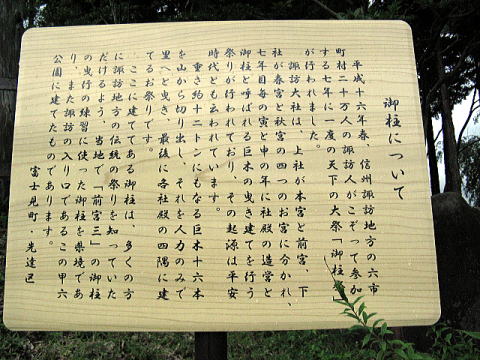 御柱について
平成十六年春、信州諏訪地方の六市
町村二十万人の諏訪人がこぞって参加
する七年に一度の天下の大祭「御柱
が行われました。
諏訪大社は、上社が本宮と前宮、下
社が春宮と秋宮の四つのお宮に分かれ、
七年目毎の寅と申の年に社殿の造営と
御柱と呼ばれる巨木の曳き建てを行う
祭りが行われており、その起源は平安
時代とも云われています。
重さ約十二トンにもなる巨木十六本
を山から切り出し、それを人力のみで
里へと曳き、最後に各社殿の四隅に建
てるお祭りです。
ここに建ててある御柱は、多くの方
に諏訪地方の伝統の祭りを知っていた
だけるよう、当地で「前宮三」の御柱
の曳行の練習に使った御柱を県境であ
り、また諏訪の入り口であるこの甲六
公園に建てたものであります。
富士見町・先達区